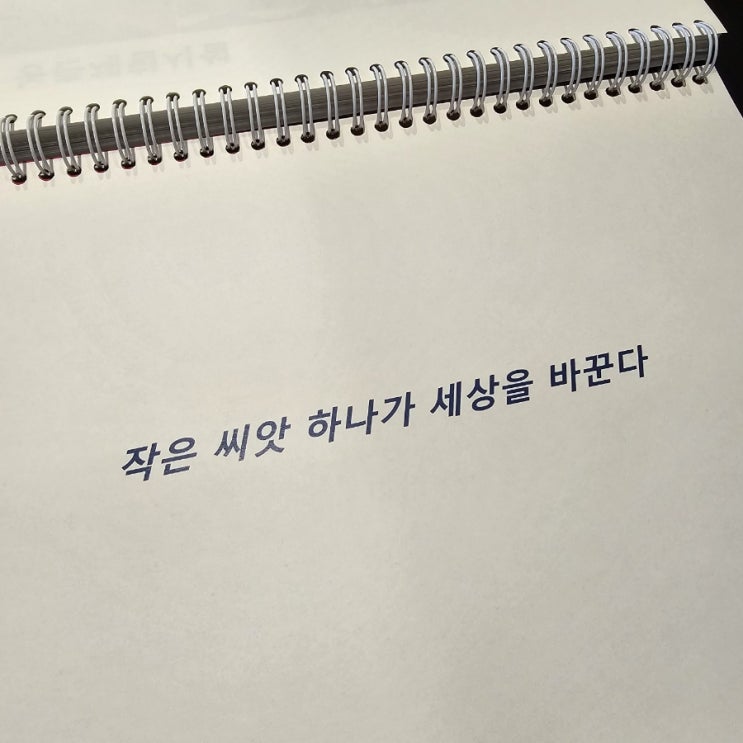 작은 씨앗 하나가 세상을 바꾼다